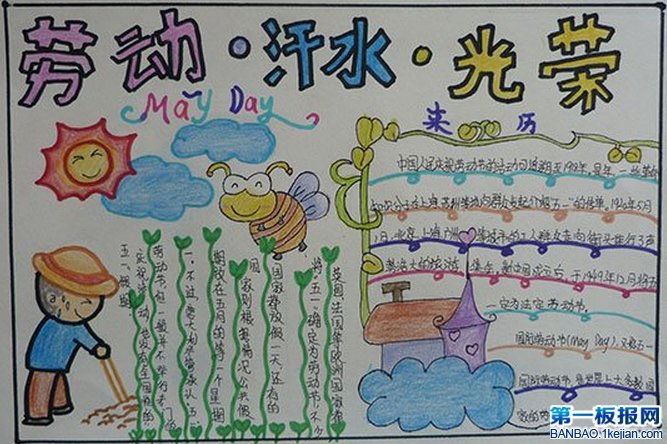 劳动·汗水·光荣
May Day
来历
中国人民庆祝劳动节的活动可追溯至1918年,是年,一些革命
知识分子在上海、苏州等地向群众散发介绍"五一"的传单。1920年5月
1日,北京、上海、广州、等城市的工人群众走向街头举行了声
势浩大的游行、集会。新中国成立后,于1949年12月将五
一定为法定劳动节。
国际劳动节(May Day),又称五一
国际劳动节,是世界上大多数国
家的劳
英国、法国等欧洲国家
将"五一"确定为劳动节。不少
国家都放假一天,还有的
国家则根据情况公共假
期放在五月的第一个星期
一。不过,意大利虽然承认五一
劳动节,但一般并不举行专门
庆祝劳动,也没有全国性的
五一假期
第一板报网
BANBAO.1kejian.com